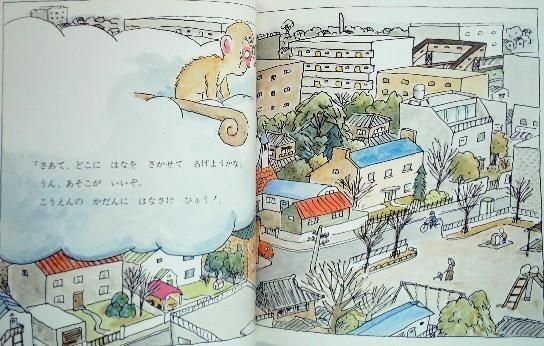 「さあて、どこに はなを さかせて あげようかな。
うん、あそこが いいぞ。
こうえんの かだんに はなさけ ひゅう！」